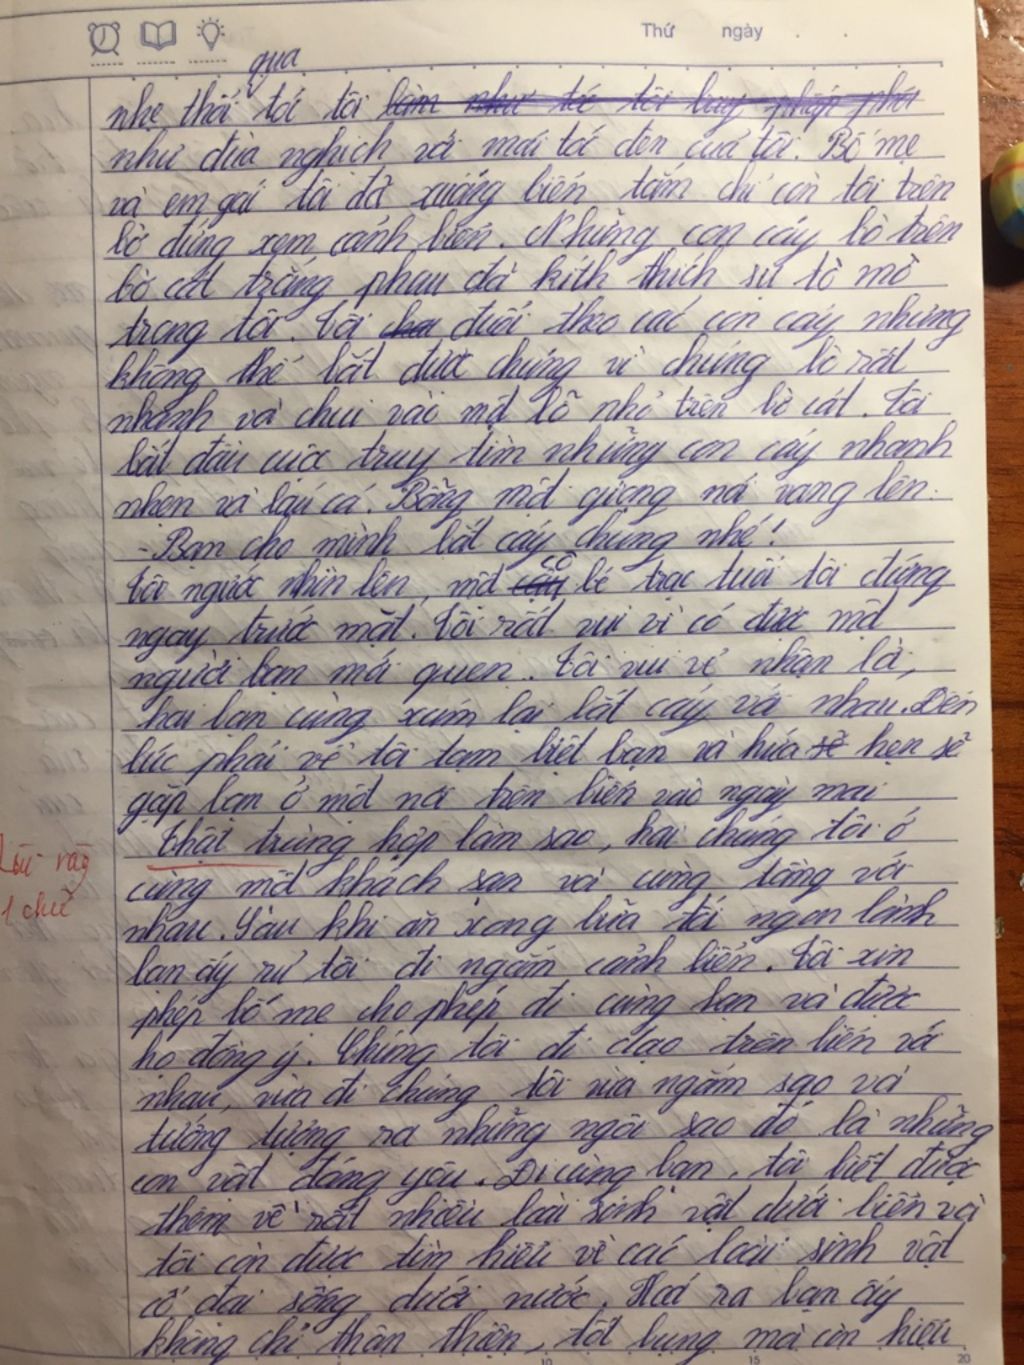 Thứ ngày . .
qua
nhẹ thổi tới tôi làm như tóc tôi bay phấp phới
như đùa nghịch với mái tóc đen của tôi. Bố mẹ
và em gái tôi đã xuống biển tắm chỉ còn tôi trên
bờ đứng xem cảnh biển. Những con cáy bò trên
bờ cát trắng phau đã kích thích sự tò mò
trong tôi. Tôi đuổi theo các con cáy nhưng
không thể bắt được chúng vì chúng bò rất
nhanh và chui vào một lỗ nhỏ trên bờ cát. Tôi
bắt đầu cuộc truy tìm những con cáy nhanh
nhẹn và láu cá. Bỗng một giọng nói vang lên.
- Bạn cho mình bắt cáy chung nhé!
cô
Tôi ngước nhìn lên, một cậu bé trạc tuổi tôi đứng
ngay trước mặt. Tôi rất vui vì có được một
người bạn mới quen. Tôi vui vẻ nhận lời,
hai bạn cùng xúm lại bắt cáy với nhau. Đến
lúc phải về tôi tạm biệt bạn và hứa sẽ hẹn sẽ
gặp bạn ở một nơi trên biển vào ngày mai
Thật trùng hợp làm sao, hai chúng tôi ở
cùng một khách sạn và cùng tầng với
nhau. Sau khi ăn xong bữa tối ngon lành
bạn ấy rủ tôi đi ngắm cảnh biển. Tôi xin
phép bố mẹ cho phép đi cùng bạn và được
họ đồng ý. Chúng tôi đi dạo trên biển với
nhau, vừa đi chúng tôi vừa ngắm sao và
tưởng tượng ra những ngôi sao đó là những
con vật đáng yêu. Đi cùng bạn, tôi biết được
thêm về rất nhiều loài sinh vật dưới biển và
tôi còn được tìm hiểu về các loài sinh vật
cổ đại sống dưới nước. Hoá ra bạn ấy
không chỉ thân thiện, tốt bụng mà còn hiểu
1 chữ
10 15 20